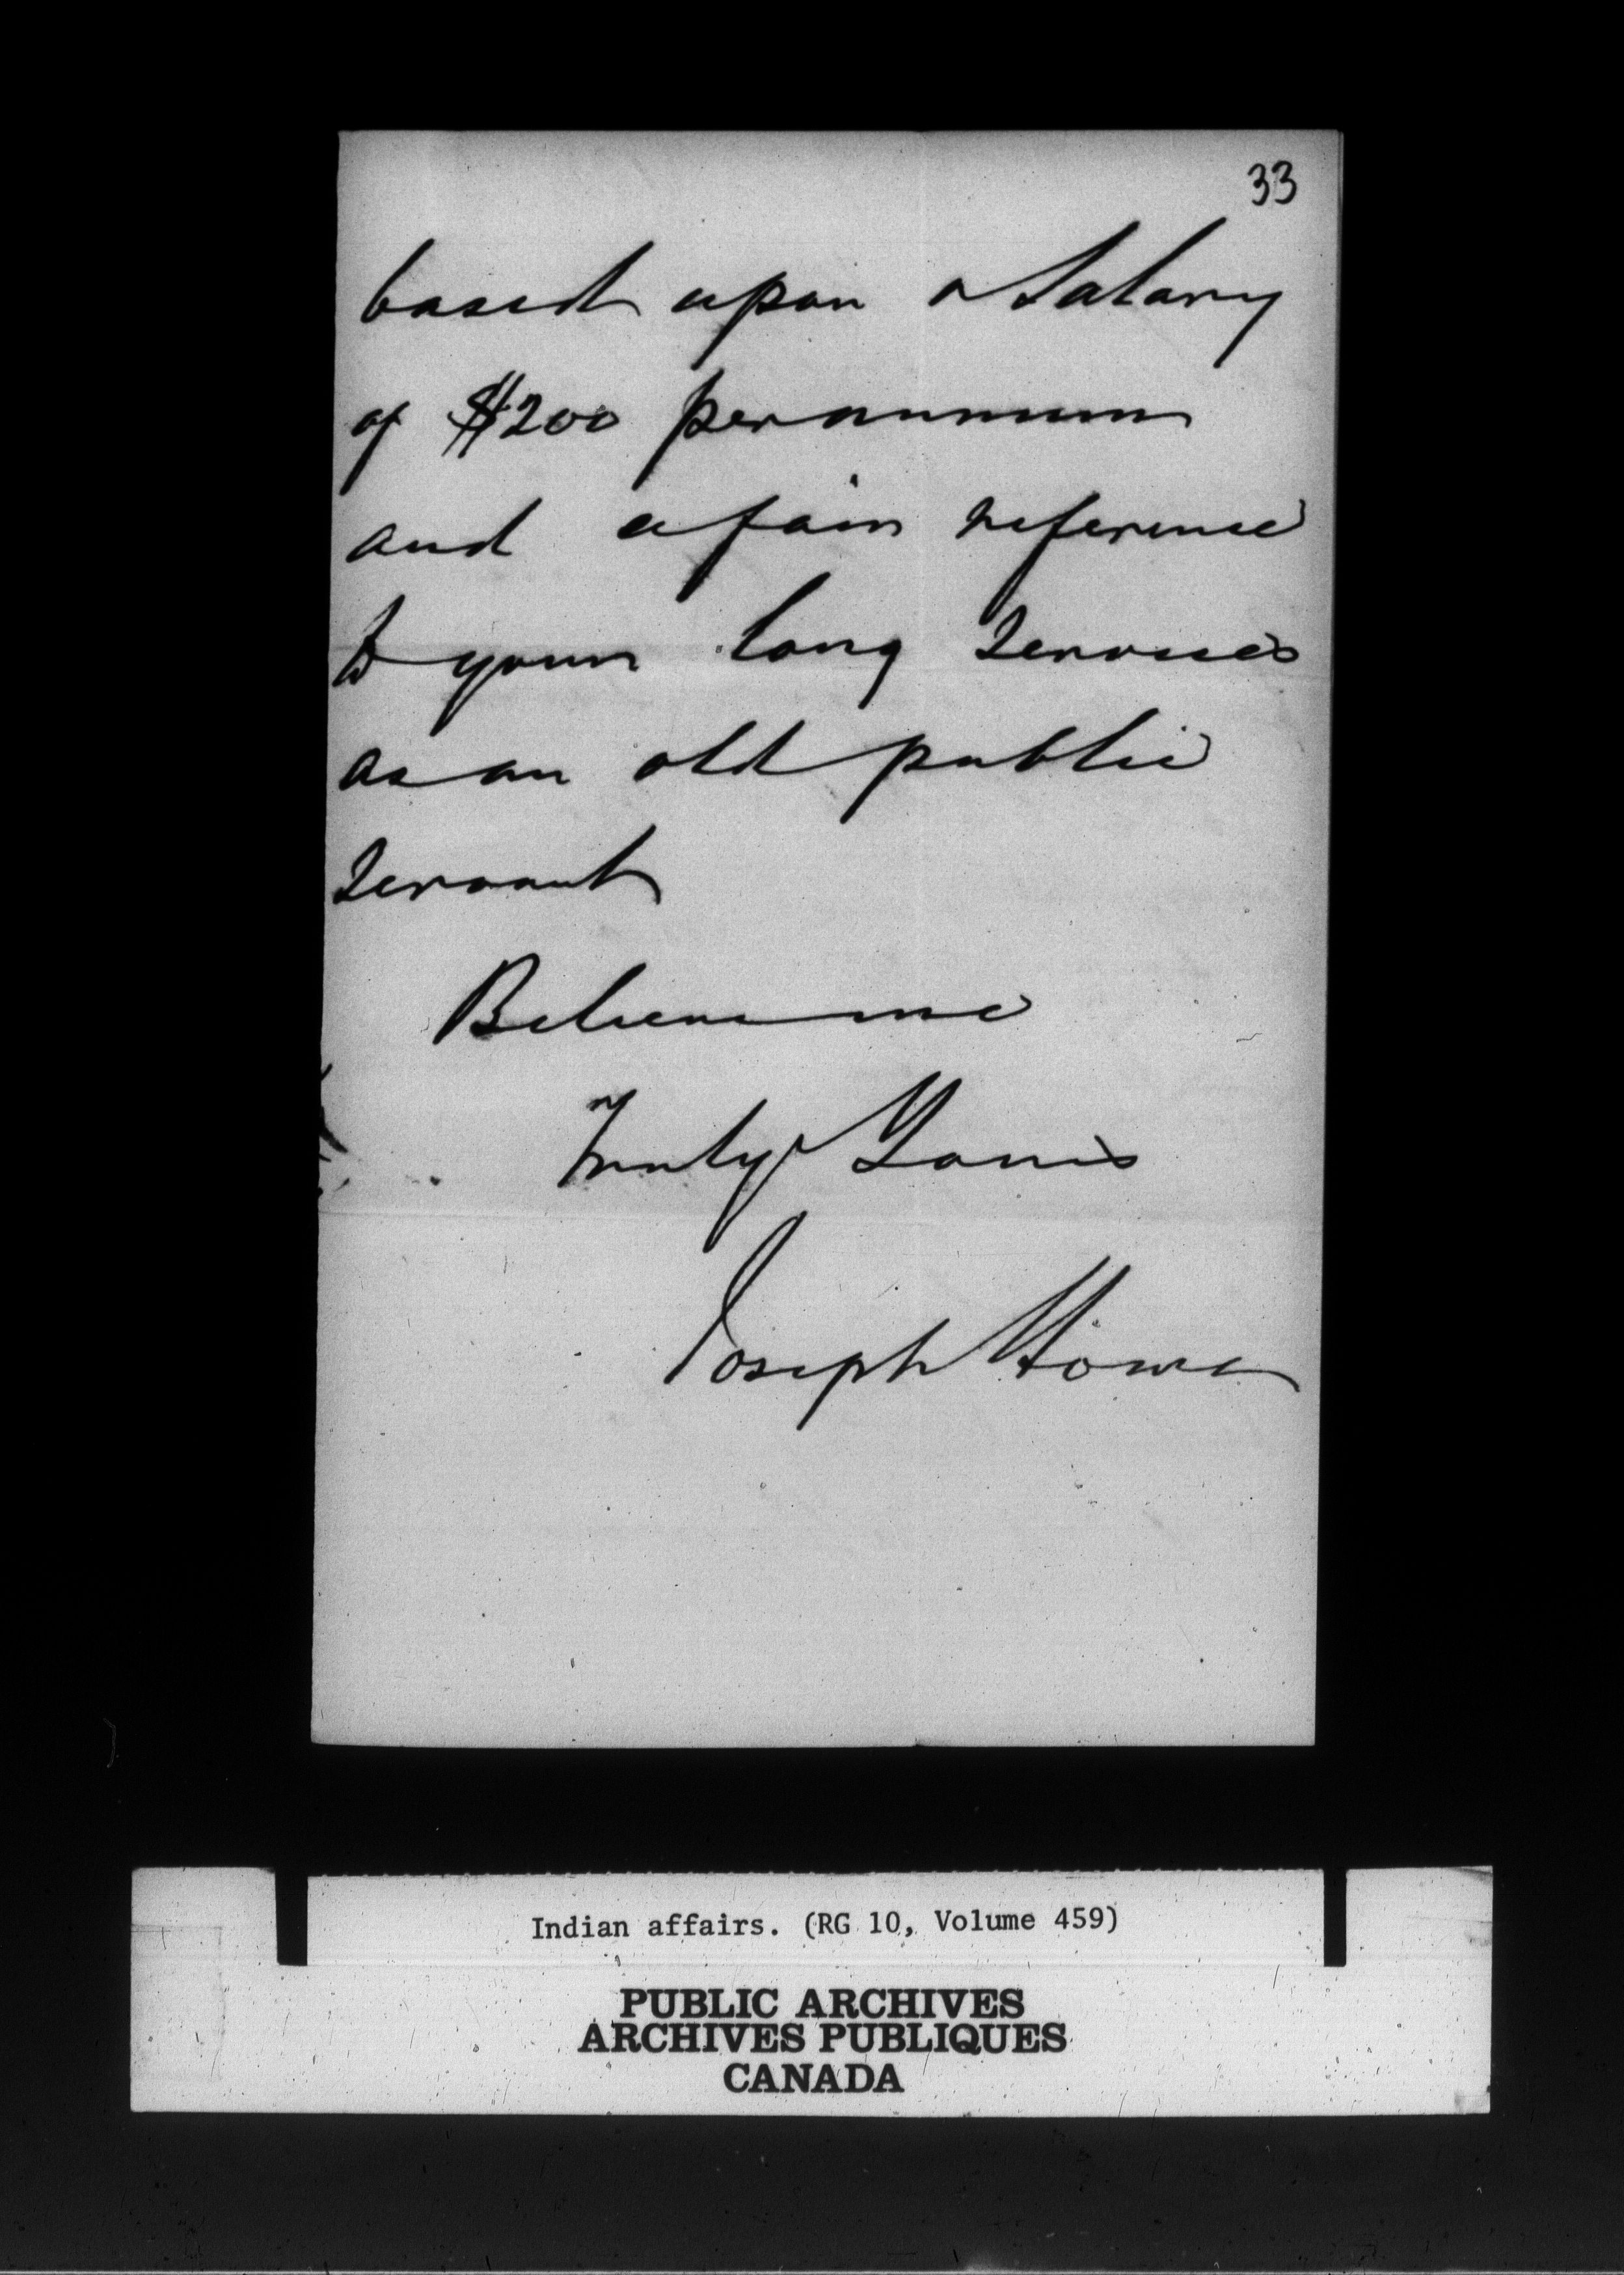 33
based upon a Salary
of $200 per annum
and a fair reference
to your long Services
as an old public
Servant
Believe me
Truly Yours
Joseph Howe
Indian affairs. (RG 10, Volume 459)
PUBLIC ARCHIVES
ARCHIVES PUBLIQUES
CANADA